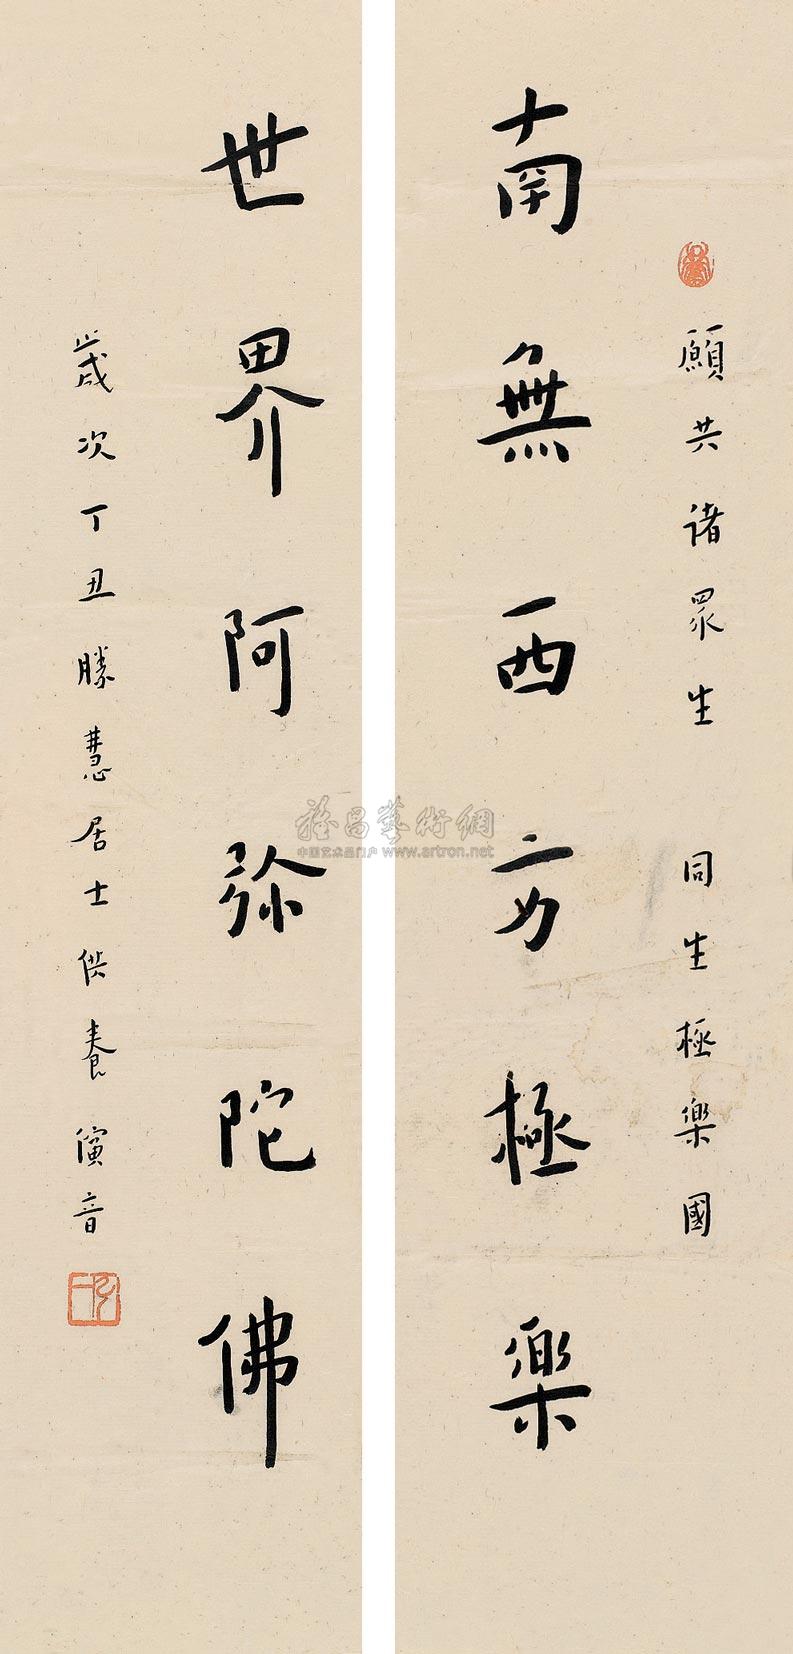 願共諸眾生 同生極樂國
南無西方極樂
世界阿弥陀佛
歲次丁丑勝慧居士供養演音
雅昌藝術網
中国艺术品门户 www.artron.net